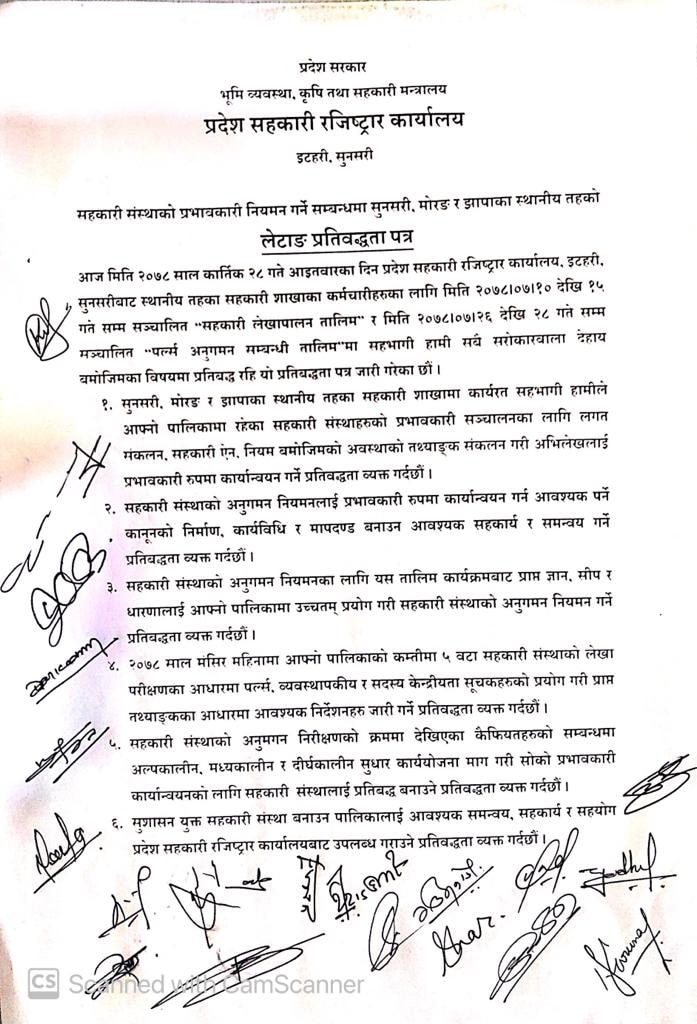 प्रदेश सरकार
भूमि व्यवस्था, कृषि तथा सहकारी मन्त्रालय
प्रदेश सहकारी रजिष्ट्रार कार्यालय
इटहरी, सुनसरी
सहकारी संस्थाको प्रभावकारी नियमन गर्ने सम्बन्धमा सुनसरी, मोरङ र झापाका स्थानीय तहको
लेटाङ प्रतिवद्धता पत्र
आज मिति २०७८ साल कार्तिक २८ गते आइतवारका दिन प्रदेश सहकारी रजिष्ट्रार कार्यालय, इटहरी,
सुनसरीबाट स्थानीय तहका सहकारी शाखाका कर्मचारीहरुका लागि मिति २०७८।०७।१० देखि १५
गते सम्म सञ्चालित "सहकारी लेखापालन तालिम" र मिति २०७८।०७।२६ देखि २८ गते सम्म
सञ्चालित "पर्ल्स अनुगमन सम्बन्धी तालिम"मा सहभागी हामी सबै सरोकारवाला देहाय
बमोजिमका विषयमा प्रतिबद्ध रहि यो प्रतिबद्धता पत्र जारी गरेका छौं।
१. सुनसरी, मोरङ र झापाका स्थानीय तहका सहकारी शाखामा कार्यरत सहभागी हामीले
आफ्नो पालिकामा रहेका सहकारी संस्थाहरुको प्रभावकारी सञ्चालनका लागि लगत
संकलन, सहकारी ऐन, नियम बमोजिमको अवस्थाको तथ्याङ्क संकलन गरी अभिलेखलाई
प्रभावकारी रुपमा कार्यान्वयन गर्ने प्रतिवद्धता व्यक्त गर्दछौं।
२. सहकारी संस्थाको अनुगमन नियमनलाई प्रभावकारी रुपमा कार्यान्वयन गर्न आवश्यक पर्ने
कानूनको निर्माण, कार्यविधि र मापदण्ड बनाउन आवश्यक सहकार्य र समन्वय गर्ने
प्रतिबद्धता व्यक्त गर्दछौं।
३. सहकारी संस्थाको अनुगमन नियमनका लागि यस तालिम कार्यक्रमबाट प्राप्त ज्ञान, सीप र
धारणालाई आफ्नो पालिकामा उच्चतम् प्रयोग गरी सहकारी संस्थाको अनुगमन नियमन गर्ने
प्रतिबद्धता व्यक्त गर्दछौं।
४. २०७८ साल मंसिर महिनामा आफ्नो पालिकाको कम्तीमा ५ वटा सहकारी संस्थाको लेखा
परीक्षणका आधारमा पर्ल्स, व्यवस्थापकीय र सदस्य केन्द्रीयता सूचकहरुको प्रयोग गरी प्राप्त
तथ्याङ्कका आधारमा आवश्यक निर्देशनहरु जारी गर्ने प्रतिवद्धता व्यक्त गर्दछौं।
५. सहकारी संस्थाको अनुमगन निरीक्षणको क्रममा देखिएका कैफियतहरुको सम्बन्धमा
अल्पकालीन, मध्यकालीन र दीर्घकालीन सुधार कार्ययोजना माग गरी सोको प्रभावकारी
कार्यान्वयनको लागि सहकारी संस्थालाई प्रतिबद्ध बनाउने प्रतिवद्धता व्यक्त गर्दछौं।
६. सुशासन युक्त सहकारी संस्था बनाउन पालिकालाई आवश्यक समन्वय, सहकार्य र सहयोग
प्रदेश सहकारी रजिष्ट्रार कार्यालयबाट उपलब्ध गराउने प्रतिवद्धता व्यक्त गर्दछौं।
CS Scanned with CamScanner